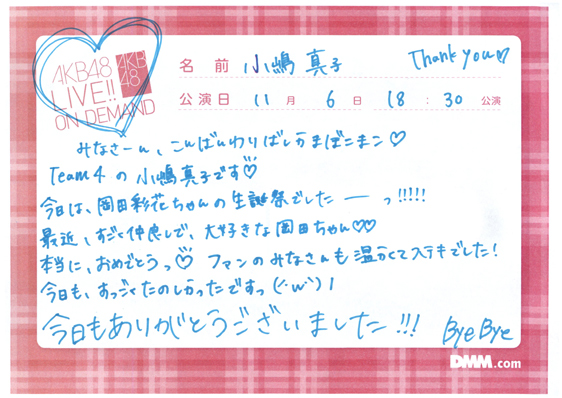 AKB48
LIVE!!
ON DEMAND
AKB
48
名前 小嶋 真子 Thank you♡
公演日 11 月 6 日 18 : 30 公演
みなさーん、こんばんわりばしかまぼこまこ♡
Team4 の 小嶋真子です♡
今日は、岡田彩花ちゃんの生誕祭でしたーっ!!!!!
最近、すごく仲良しで、大好きな岡田ちゃん♡♡
本当に、おめでとうっ♡ ファンのみなさんも温かくてステキでした!
今日も、すっごくたのしかったですっ(´・ω・`)ノ
今日もありがとうございました!!! Bye Bye
DMM.com